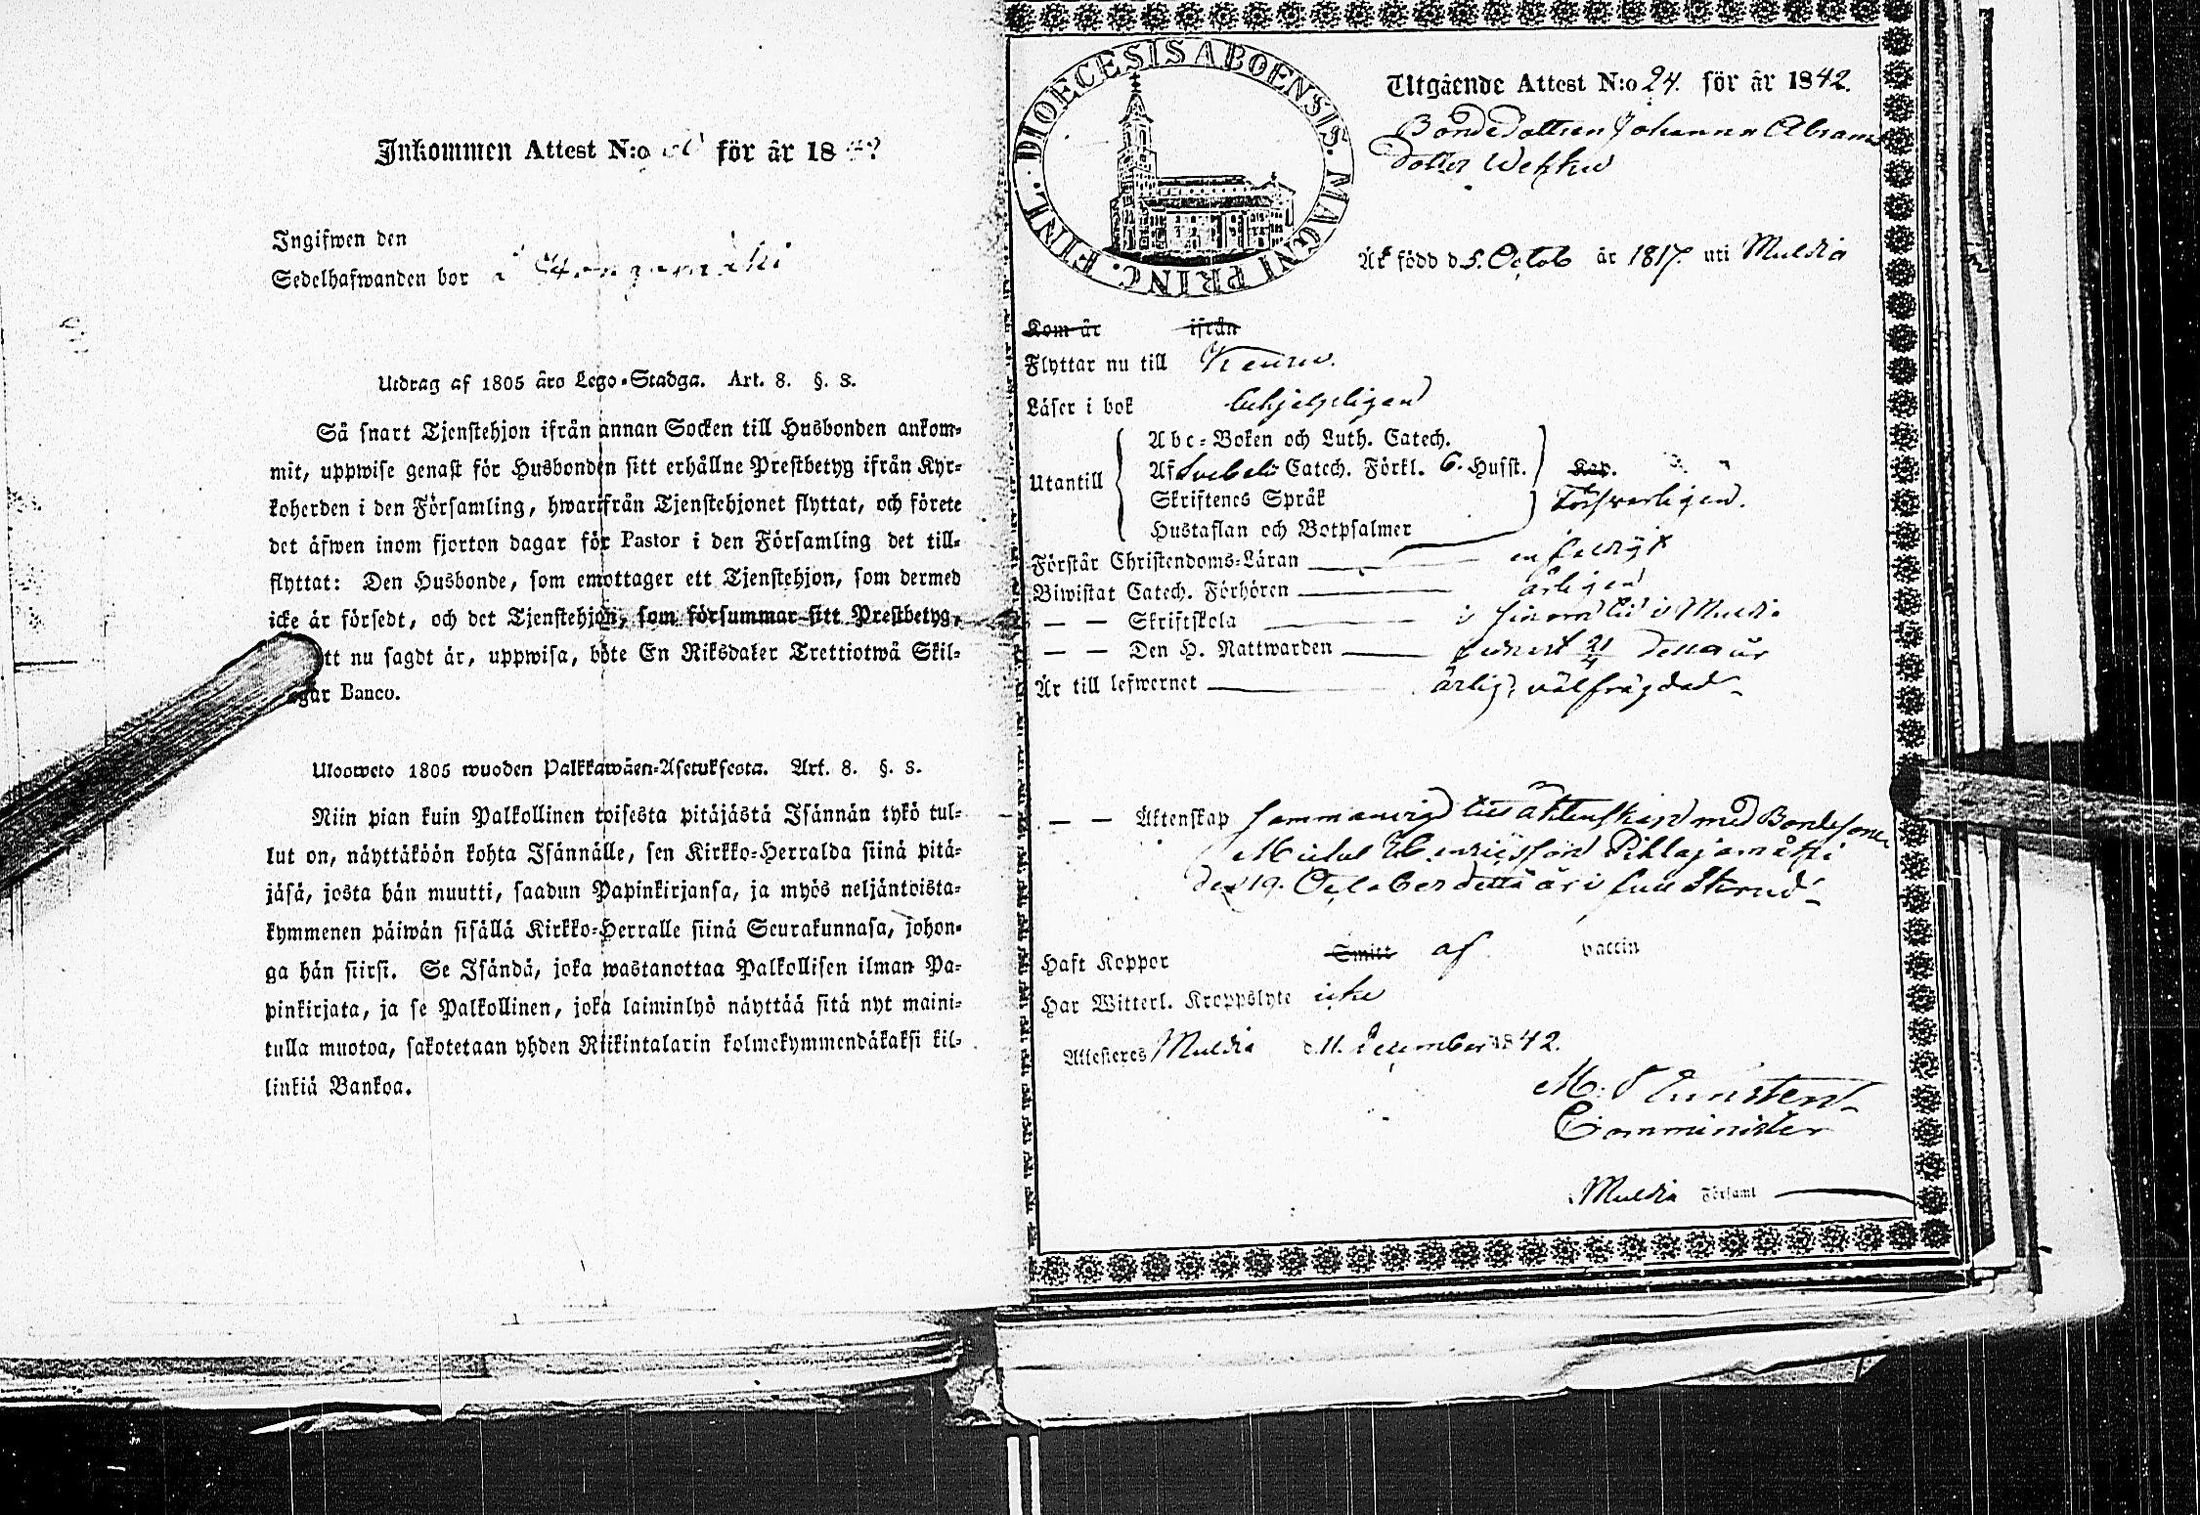 Inkommen Attest N:o för år 18
Ingifwen den
Sedelhafwanden bor i
Utdrag af 1805 åro Lego-Stadga. Art. 8. §. 3.
Så snart Tjenstehjon ifrån annan Socken till Husbonden ankom-
mit, uppwise genast för Husbonden sitt erhållne Prestbetyg ifrån Kyr-
koherden i den Församling, hwarifrån Tjenstehjonet flyttat, och förete
det äfwen inom fjorton dagar för Pastor i den Församling det till-
flyttat: Den Husbonde, som emottager ett Tjenstehjon, som dermed
icke är försedt, och det Tjenstehjon, som försummar sitt Prestbetyg,
tt nu sagdt är, uppwisa, böte En Riksdaler Trettiotwå Skil-
gar Banco.
Ulosweto 1805 wuoden Palkkawäen-Asetuksesta. Art. 8. §. 3.
Niin pian kuin Palkollinen toisesta pitäjästä Isännän tykö tul-
lut on, näyttäköön kohta Isännälle, sen Kirkko-Herralda siinä pitä-
jäsä, josta hän muutti, saadun Papinkirjansa, ja myös neljäntoista-
kymmenen päiwän sisällä Kirkko-Herralle siinä Seurakunnasa, johon-
ga hän siirsi. Se Isändä, joka wastanottaa Palkollisen ilman Pa-
pinkirjata, ja se Palkollinen, joka laiminlyö näyttää sitä nyt maini-
tulla muotoa, sakotetaan yhden Riikintalarin kolmekymmendäkaksi kil-
linkiä Bankoa.
DIOECESIS ABOENSIS. MAGNI PRINC. FINL.
Utgående Attest N:o 24. för år 1842.
Bondedottren Johanna Abrams
dotter Wehku
Är född d 5. Octob år 1817. uti Muldia
Kom år ifrån
Flyttar nu till Keuru.
Läser i bok behjelpligen
Abc-Boken och Luth. Catech.
Utantill
Af Svebeli Catech. Förkl. 6. Hufst.
Skriftenes Språk försvarligen.
Hustaflan och Botpsalmer
Förstår Christendoms-Läran enfaldigt
Biwistat Catech. Förhören årligen
— — Skriftskola i sinom tid i Muldia
— — Den H. Nattwarden senast 21/4 detta år
Är till lefwernet ärlig, välfrägdad
— — Äktenskap sammanvigd till äktenskap med Bondesonen
Michel Henricsson Pihlajamäki
den 19. October detta år i
Haft Koppor Smitt af vaccin
Har Witterl. Kroppslyte icke
Attesteres Muldia d. 11. December 1842.
M.
Comminister
Muldia Församl